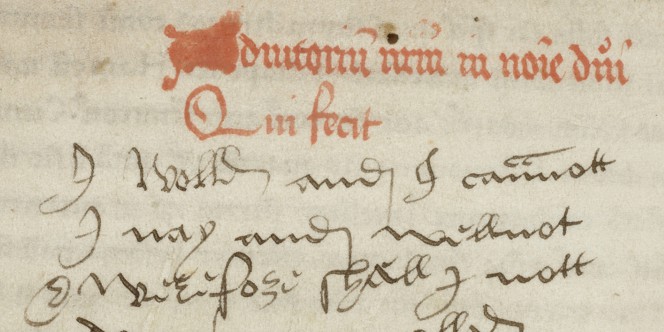 Adiutoriū nrm̄ in noīe dnī
Qui fecit
I Wolld and I cannott
I nay and wellnot
Wezefoze shall I nott